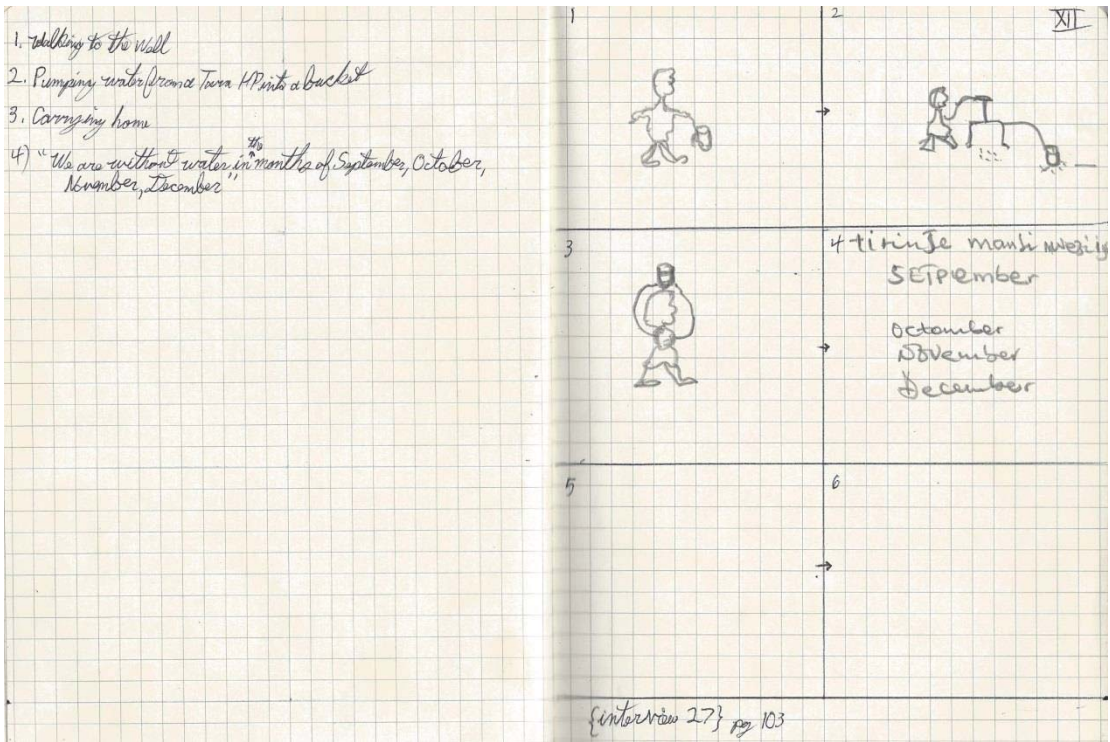 1. Walking to the Well
2. Pumping water from a Town HP into a bucket
3. Carrying home
4) "We are without water in the months of September, October,
November, December"
1
2
XII
3
4 tirinJe mansi mwezi
SETPember
Octomber
November
December
5
6
{interview 27} pg 103